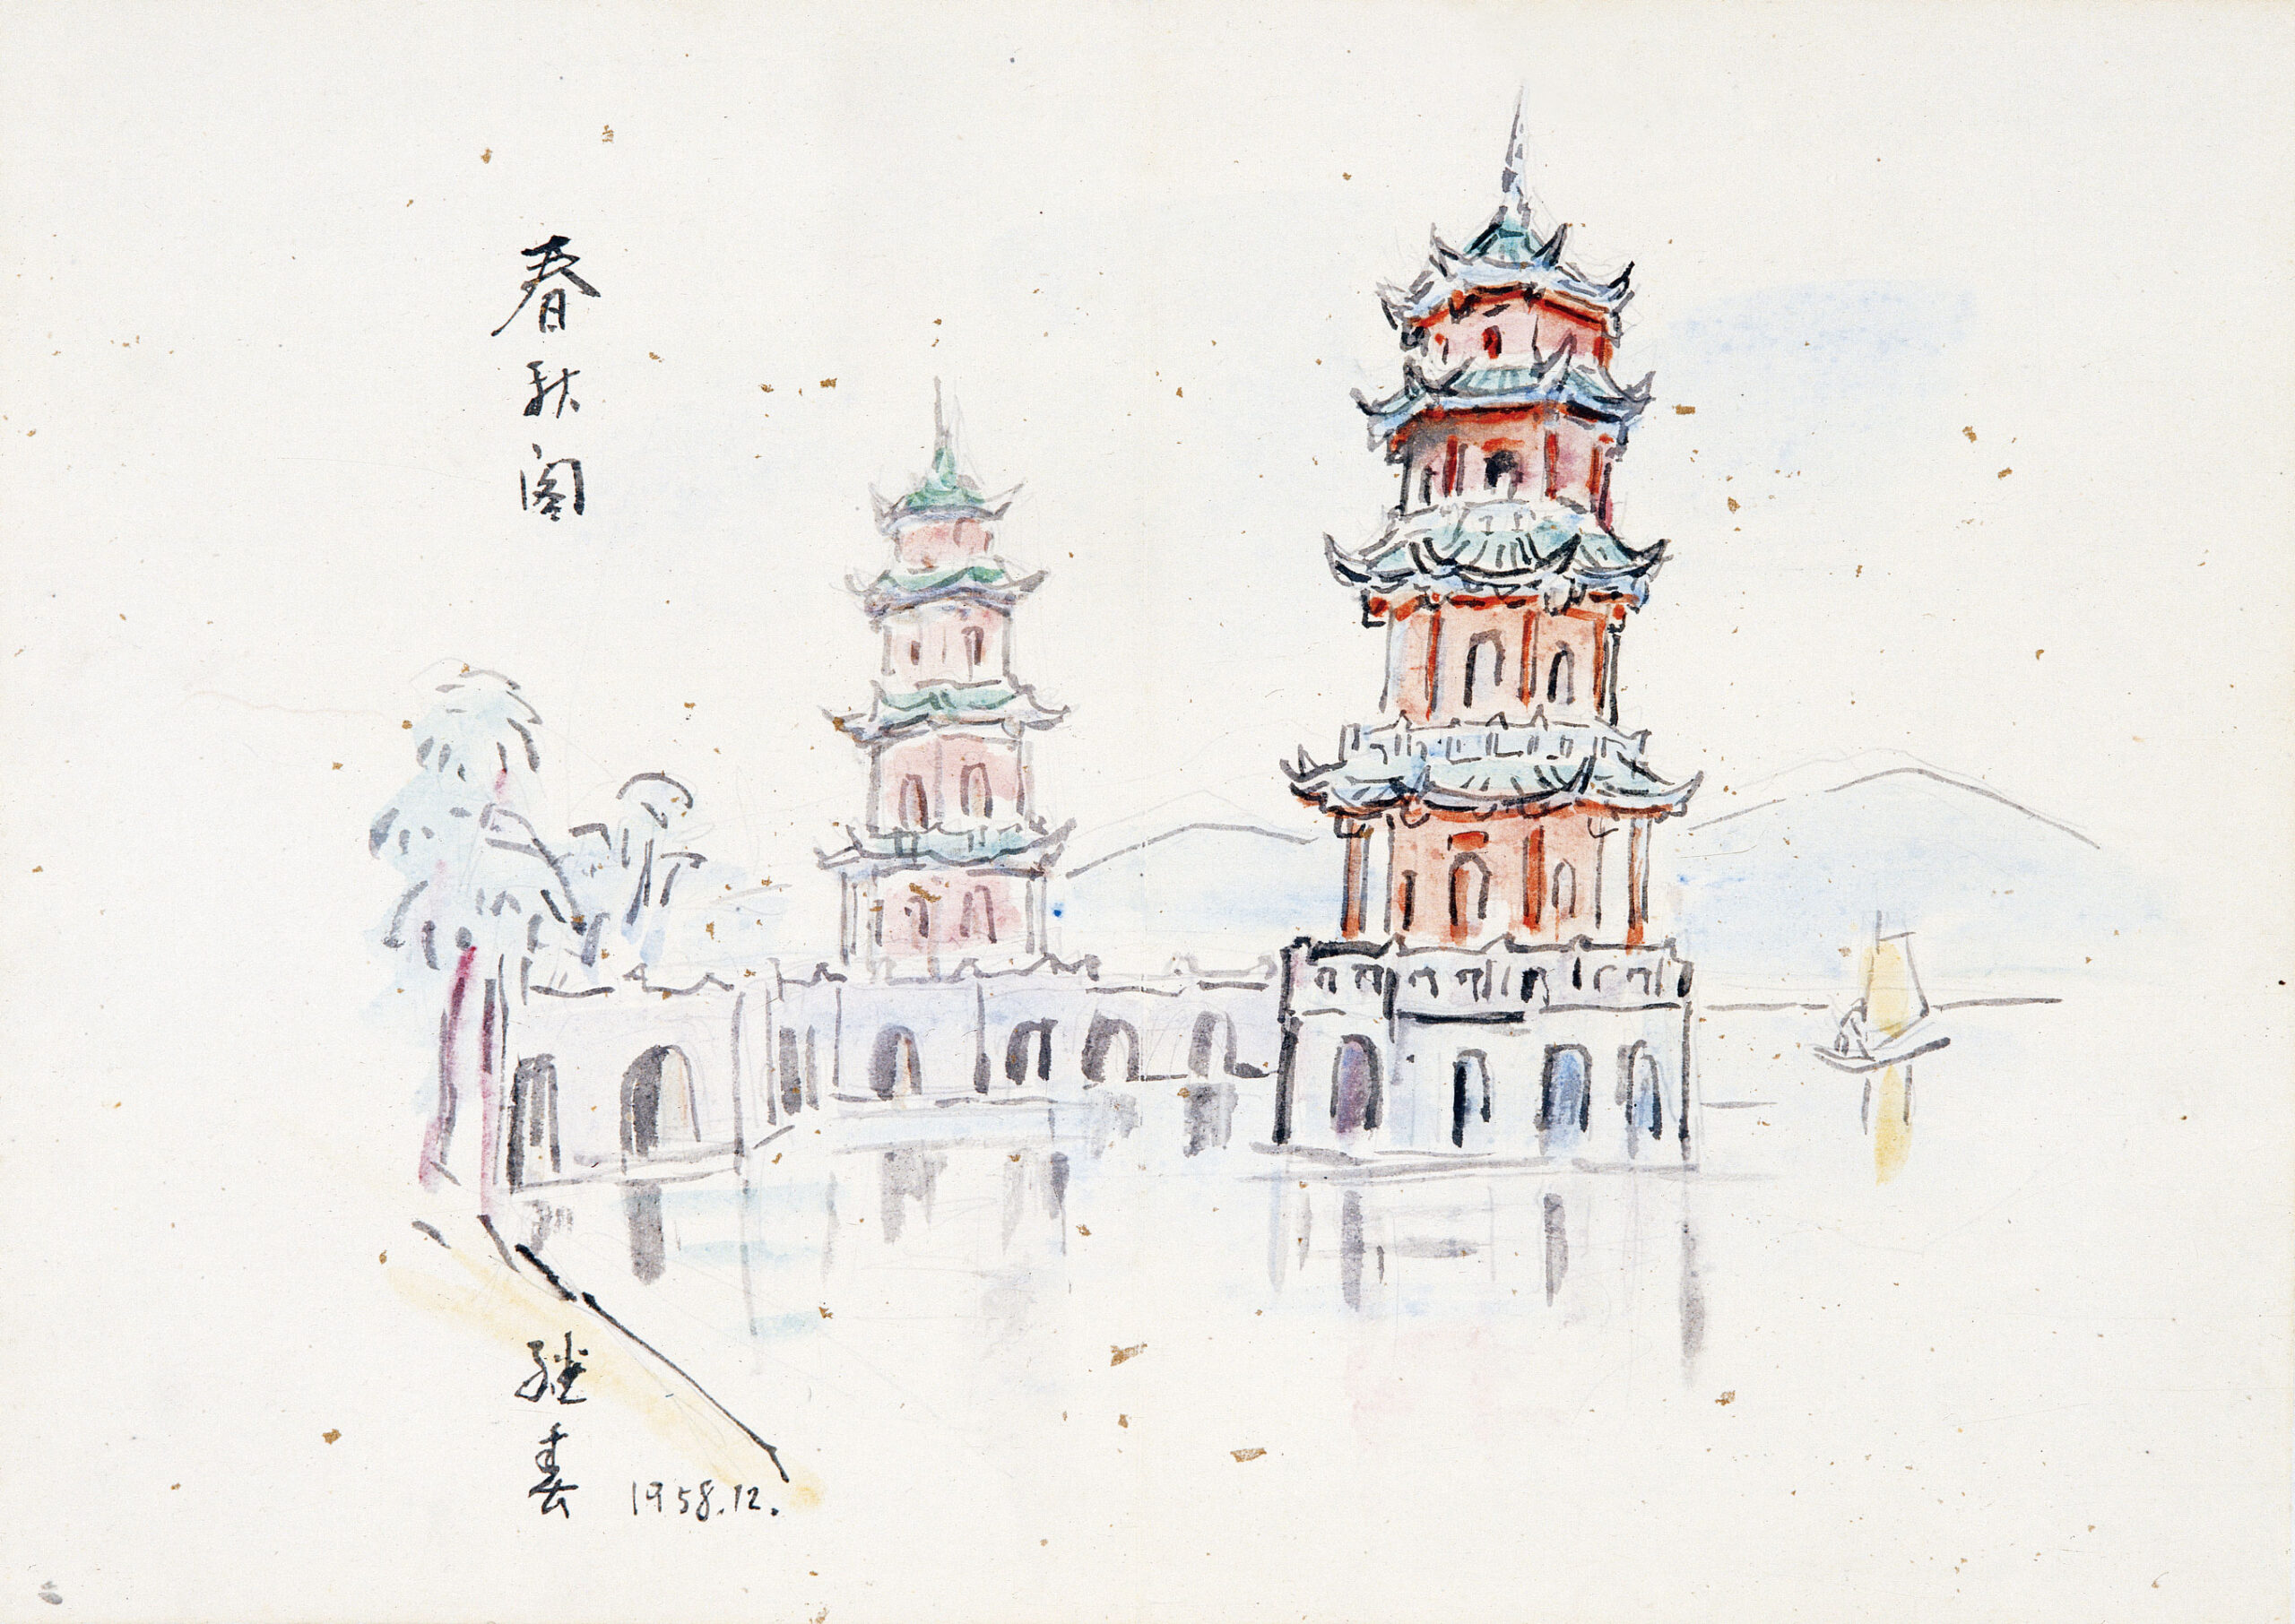 春秋阁
1958.12.